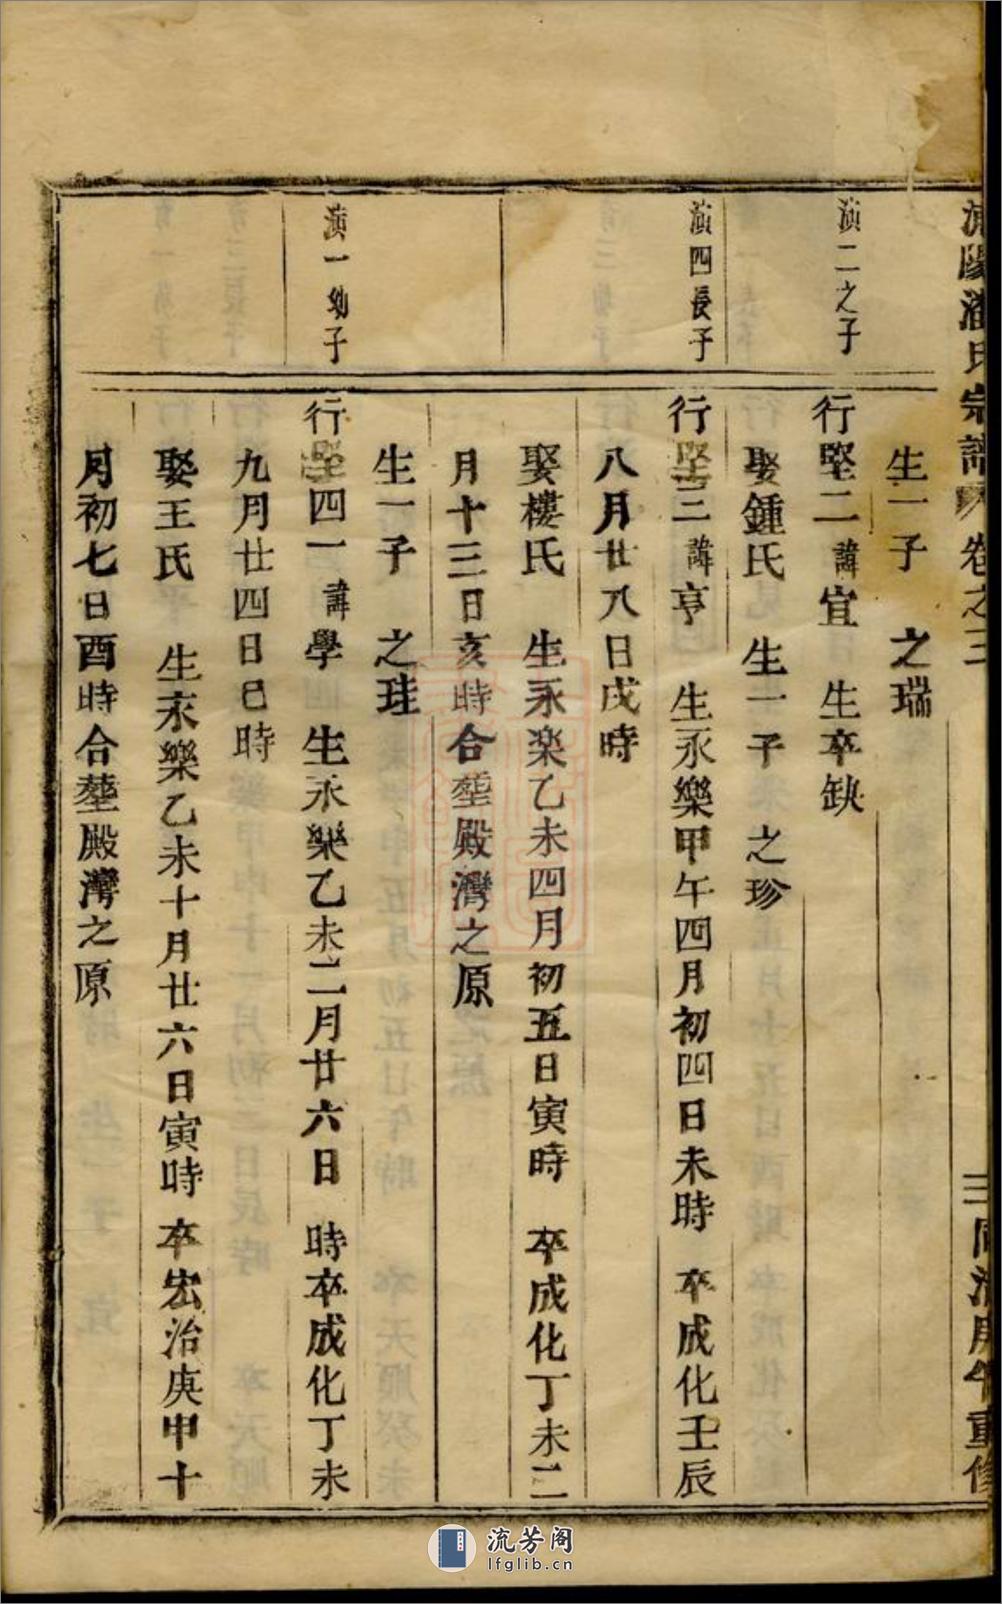 浦陽潘氏宗譜 卷之三 三 同治庚午重修
生一子 之瑞
演二之子
行堅二 諱宜 生卒缺
娶鍾氏 生一子 之珍
演四長子
行堅三 諱亨 生永樂甲午四月初四日未時 卒成化壬辰
八月廿八日戌時
娶樓氏 生永楽乙未四月初五日寅時 卒成化丁未二
月十三日亥時合塟殿灣之原
生一子 之珪
演一幼子
行堅四一 諱學 生永樂乙未二月廿六日 時卒成化丁未
九月廿四日巳時
娶王氏 生永樂乙未十月廿六日寅時 卒宏治庚申十
月初七日酉時合塟殿灣之原
流芳阁
lfglib.cn